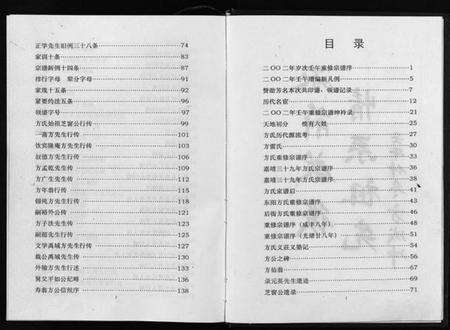 目录
二〇〇二年岁次壬午重修宗谱序 1
二〇〇二年壬午增编新凡例 5
赞助芳名本次共印谱、领谱记录 7
历代名宦 12
二〇〇二年壬午重修宗谱吟待录 21
天地初分 25
方氏历代源流考 27
方雷氏 30
方氏重修宗谱序 32
嘉靖三十九年方氏宗谱序 33
嘉靖三十九年方氏宗谱序 38
方氏家谱后 41
东阳方氏重修宗谱序 43
后街方氏重修宗谱序 46
重修宗谱序（咸丰八年） 48
重修宗谱序（光绪廿八年） 51
方氏义莊义塾记 54
方公之碑 56
方伯翁 57
录元英先生遗迹 69
芝窗公遗录 71
正学先生旧例三十八条 74
家训十条 83
宗谱新例十四条 87
排行字母 辈分字母 91
家规十五条 92
紧要约法五条 96
领谱字号 97
方氏始祖芝窗公行传 99
一斋方先生行传 101
饮宾隆庵方先生行传 103
叔德方先生行传 105
方孟乾先生传 107
方广生先生传 110
方年翁行传 111
锦苑方先生行传 115
嗣裕外公传 121
方子扶先生传 123
嗣裕先生家传 125
文学禹城方先生行传 127
截公禹域先生传 130
外输方先生行述 133
巽父平如公纪略 136
寿翁方公信煦序 138